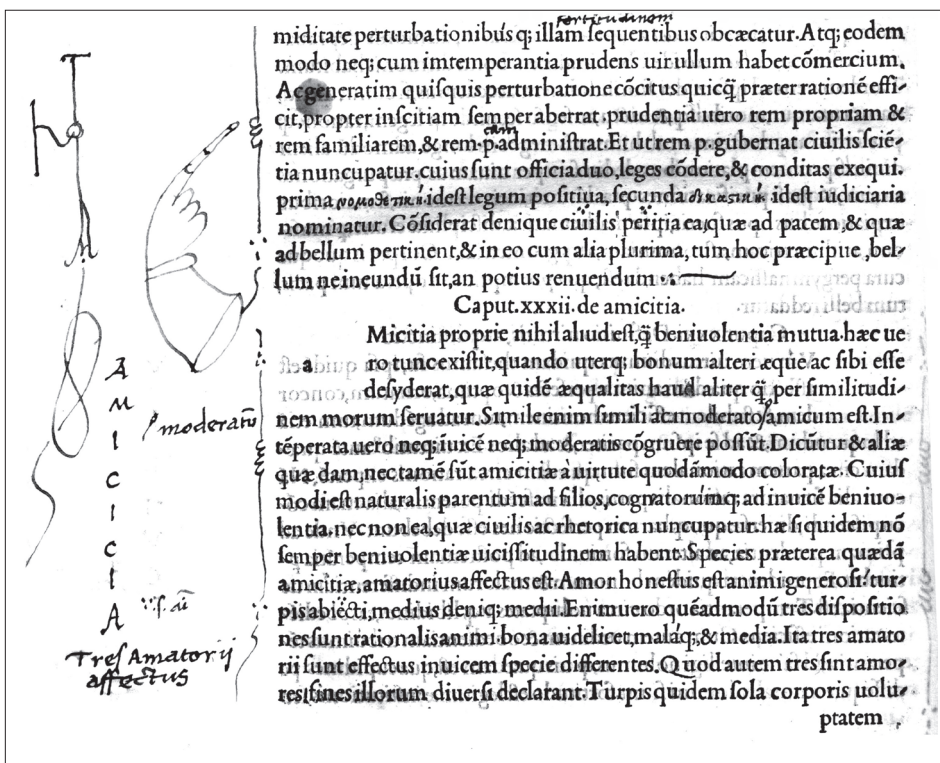 fortitudinem
miditate perturbationibus q; illam sequentibus obcæcatur. Atq; eodem
modo neq; cum imtemperantia prudens uir ullum habet cōmercium.
Ac generatim quisquis perturbatione cōcitus quicq̃ præter rationē effi-
cit, propter inscitiam semper aberrat. prudentia uero rem propriam &
cam
rem familiarem, & rem.p. administrat. Et ut rem p. gubernat ciuilis sciē-
tia nuncupatur. cuius sunt officia duo, leges cōdere, & conditas exequi.
prima νομοθετικὴ idest legum positiua, secunda δικαστικὴ idest iudiciaria
nominatur. Cōsiderat denique ciuilis peritia ea, quæ ad pacem, & quæ
ad bellum pertinent, & in eo cum alia plurima, tum hoc præcipue, bel-
lum ne ineundū sit, an potius renuendum
Caput. xxxii. de amicitia.
a Micitia proprie nihil aliud est, q̃ beniuolentia mutua. hæc ue
ro tunc existit, quando uterq; bonum alteri æque ac sibi esse
desyderat, quæ quidē æqualitas haud aliter q̃ per similitudi-
nem morum seruatur. Simile enim simili ac moderato amicum est. In-
tēperata uero neq; iuicē neq; moderatis cōgruere possūt. Dicūtur & aliæ
quædam, nec tamē sūt amicitiæ à uirtute quodāmodo coloratæ. Cuius
modi est naturalis parentum ad filios, cognatorumq; ad inuicē beniuo-
lentia. nec non ea, quæ ciuilis ac rhetorica nuncupatur. hæ siquidem nō
semper beniuolentiæ uicissitudinem habent. Species præterea quædā
amicitiæ, amatorius affectus est. Amor honestus est animi generosi: tur-
pis abiecti, medius deniq; medii. Enimuero quēadmodū tres dispositio
nes sunt rationalis animi. bona uidelicet, malaq;, & media. Ita tres amato
rii sunt effectus inuicem specie differentes. Quod autem tres sint amo-
res, fines illorum diuersi declarant. Turpis quidem sola corporis uolu-
ptatem
moderatū
A
M
I
C
I
C
I
A
Tres Amatorij
affectus